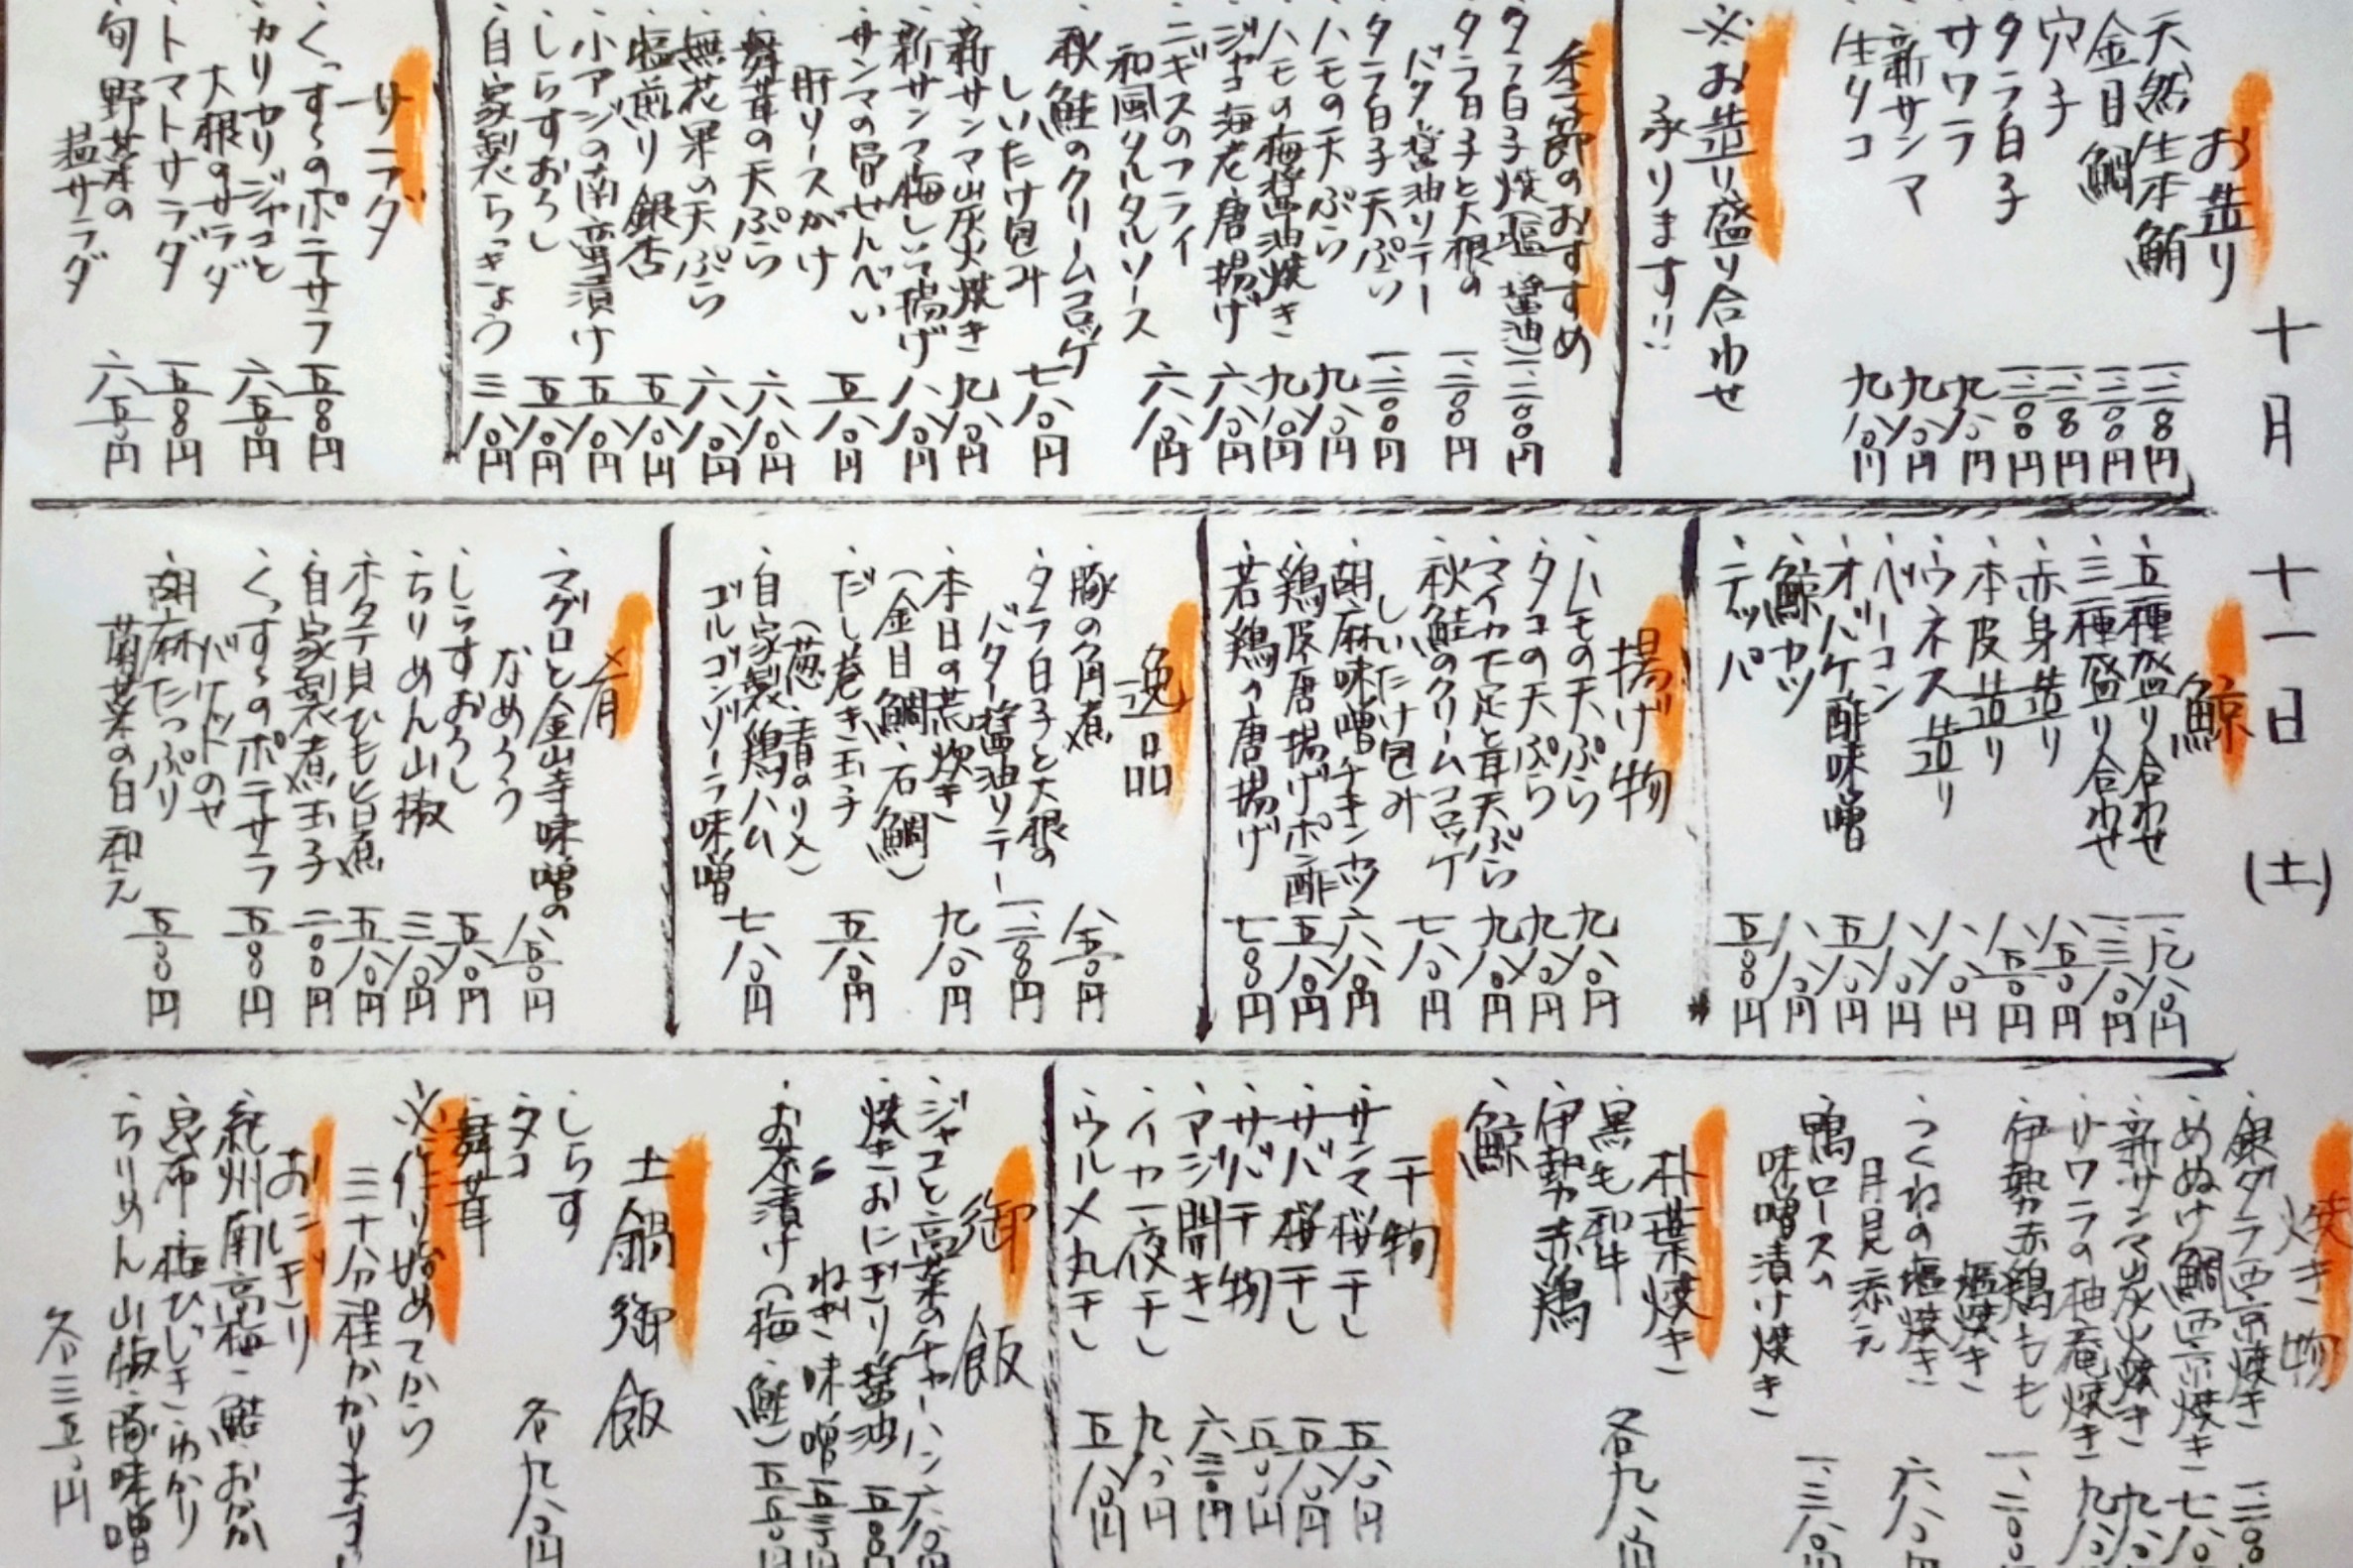 十月 十一日 (土)
お造り
天然生本鮪 一、二八〇円
金目鯛 一、二〇〇円
穴子 一、二八〇円
タラ白子 一、二〇〇円
サワラ 九八〇円
新サンマ 九八〇円
生タコ 九八〇円
※お造り盛り合わせ
承ります!!
季節のおすすめ
タラ白子焼(塩・醤油)一、二〇〇円
タラ白子と大根の
バター醤油ソテー 一、二〇〇円
タラ白子天ぷら 一、二〇〇円
ハモの天ぷら 九八〇円
ハモの梅醤油焼き 九八〇円
ジャコ海老唐揚げ 六八〇円
ニギスのフライ
和風タルタルソース 六八〇円
秋鮭のクリームコロッケ
しいたけ包み 七八〇円
新サンマ炭火焼き 九八〇円
新サンマ梅しそ揚げ 八八〇円
サンマの骨せんべい
肝ソースがけ 五八〇円
舞茸の天ぷら 六八〇円
無花果の天ぷら 六八〇円
塩煎り銀杏 五八〇円
小アジの南蛮漬け 五八〇円
しらすおろし 五八〇円
自家製らっきょう 三八〇円
サラダ
くっすぅのポテサラ 五八〇円
カリカリジャコと
大根のサラダ 六五〇円
トマトサラダ 五八〇円
旬野菜の
塩サラダ 六五〇円
鯨
五種盛り合わせ 一、九八〇円
三種盛り合わせ 一、三八〇円
赤身造り 八五〇円
本皮造り 八五〇円
ウネス造り 八八〇円
ベーコン 八八〇円
オバケ酢味噌 五八〇円
鯨カツ 八八〇円
テッパ 五八〇円
揚げ物
ハモの天ぷら 九八〇円
タコの天ぷら 九八〇円
マイカ下足と茸天ぷら 九八〇円
秋鮭のクリームコロッケ
しいたけ包み 七八〇円
胡麻味噌チキンカツ 六八〇円
鶏皮唐揚げポン酢 五八〇円
若鶏の唐揚げ 七八〇円
逸品
豚の角煮 八五〇円
タラ白子と大根の
バター醤油ソテー 一、二八〇円
本日の荒炊き
(金目鯛・石鯛) 九八〇円
だし巻き玉子
(葱・青のり〆) 五八〇円
自家製鶏ハム
ゴルゴンゾーラ味噌 七八〇円
肴
マグロと金山寺味噌の
なめろう 八五〇円
しらすおろし 五八〇円
ちりめん山椒 三八〇円
ホタテ貝ひも旨煮 五八〇円
自家製煮玉子 二〇〇円
くっすぅのポテサラ
バケットのせ 五八〇円
胡麻たっぷり
菊菜の白和え 五八〇円
焼き物
銀ダラ西京焼き 一、二〇〇
めぬけ鯛西京焼き 七八〇
新サンマ炭火焼き 九八〇
サワラの柚庵焼き 九八〇
伊勢赤鶏もも
塩焼き 一、二〇〇
つくねの塩焼き
月見添え 六八〇円
鴨ロースの
味噌漬け焼き 一、三八〇円
朴葉焼き
黒毛和牛
伊勢赤鶏
鯨
各九八〇円
干物
サンマ桜干し 五八〇円
サバ桜干し 五八〇円
サバ干物 五八〇円
アジ開き 六三〇円
イカ一夜干し 九八〇円
ウルメ丸干し 五八〇円
御飯
ジャコと高菜のチャーハン 六八〇円
焼きおにぎり醤油 五〇〇円
〃 ねぎ味噌 五三〇円
お茶漬け(梅・鮭)五五〇円
土鍋御飯
しらす
タコ
舞茸
各九八〇円
※作り始めてから
三十分程かかります!
おにぎり
紀州南高梅・鮭・おかか
昆布・梅ひじき・ゆかり
ちりめん山椒・豚味噌
各三五〇円